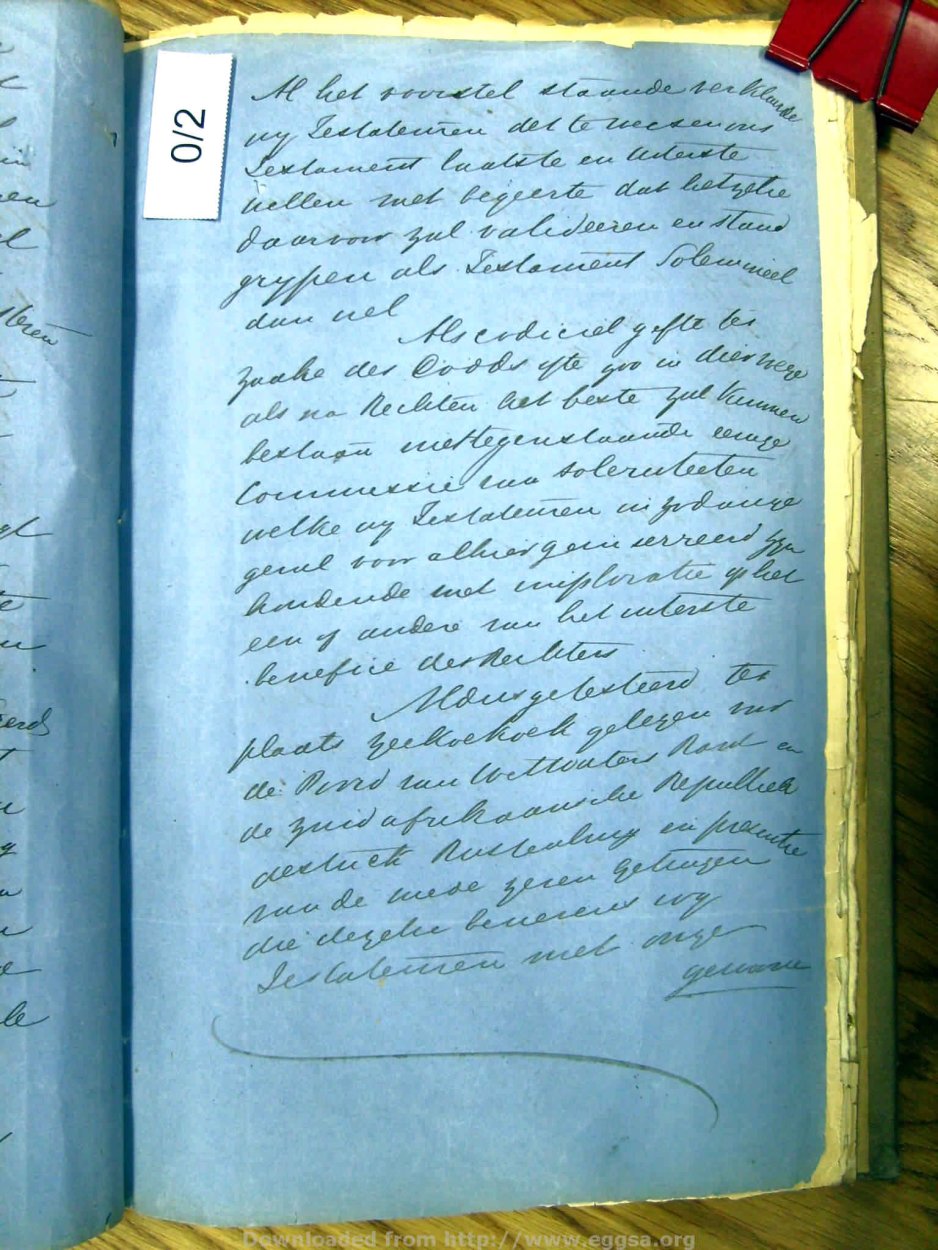 0/2
Al het voorstel staande verklaarde
wy Testateuren det te weesen ons
Testament laatste en uiterste
willen met begeerte dat hetzelve
daarvoor zal valideeren en stand
grypen als Testament Solemneel
dan wel
Als codiciel gifte ter
zaake des Doods ofte zoo in dier wege
als na Rechten het beste zal kunnen
bestaan niettegenstaande eenige
Commissie van solemniteeten
welke wy Testateuren in zodanige
geval voor alhier geinsereerd zyn
houdende met imploratie op het
een of andere van het uiterste
benefice des Rechters
Aldus getesteerd ter
plaats Zeekoehoek gelegen
de Noord van Witwaters Rand en
de Zuid afrikaansche Republiek
destrick Rustenburg in presentie
van de mede getuigen
die dezelve benevens wy
Testateuren met onze
gewone
Downloaded from http://www.eggsa.org